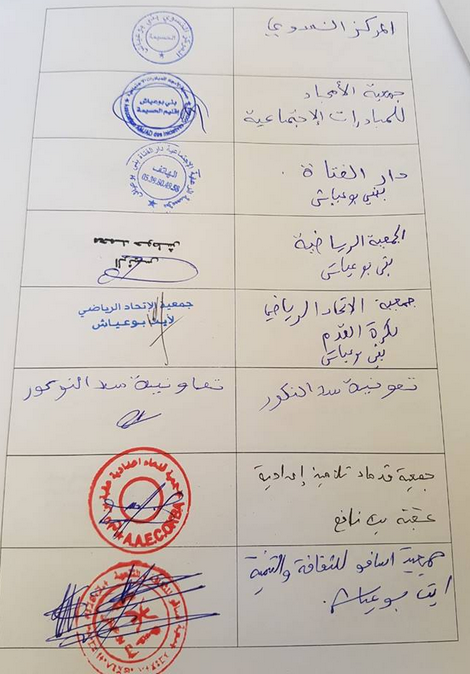 المركز النسوي
الحسيمة
جمعية الأمجاد
للمبادرات الإجتماعية
بني بوعياش
إقليم الحسيمة
دار الفتاة
بني بوعياش
الهاتف
05.39.80.49.58
الجمعية الرياضية
بني بوعياش
محمد
الرئيس
جمعية الاتحاد الرياضي
لكرة القدم
بني بوعياش
جمعية الإتحاد الرياضي
لايث بوعياش
تعونية سد النكور
تعاونية سد النوكور
جمعية قدماء تلاميذ إعدادية
عقبة بن نافع
A.A.E.C.O.R.B.A
جمعية اسافو للثقافة والتنمية
ايت بوعياش.